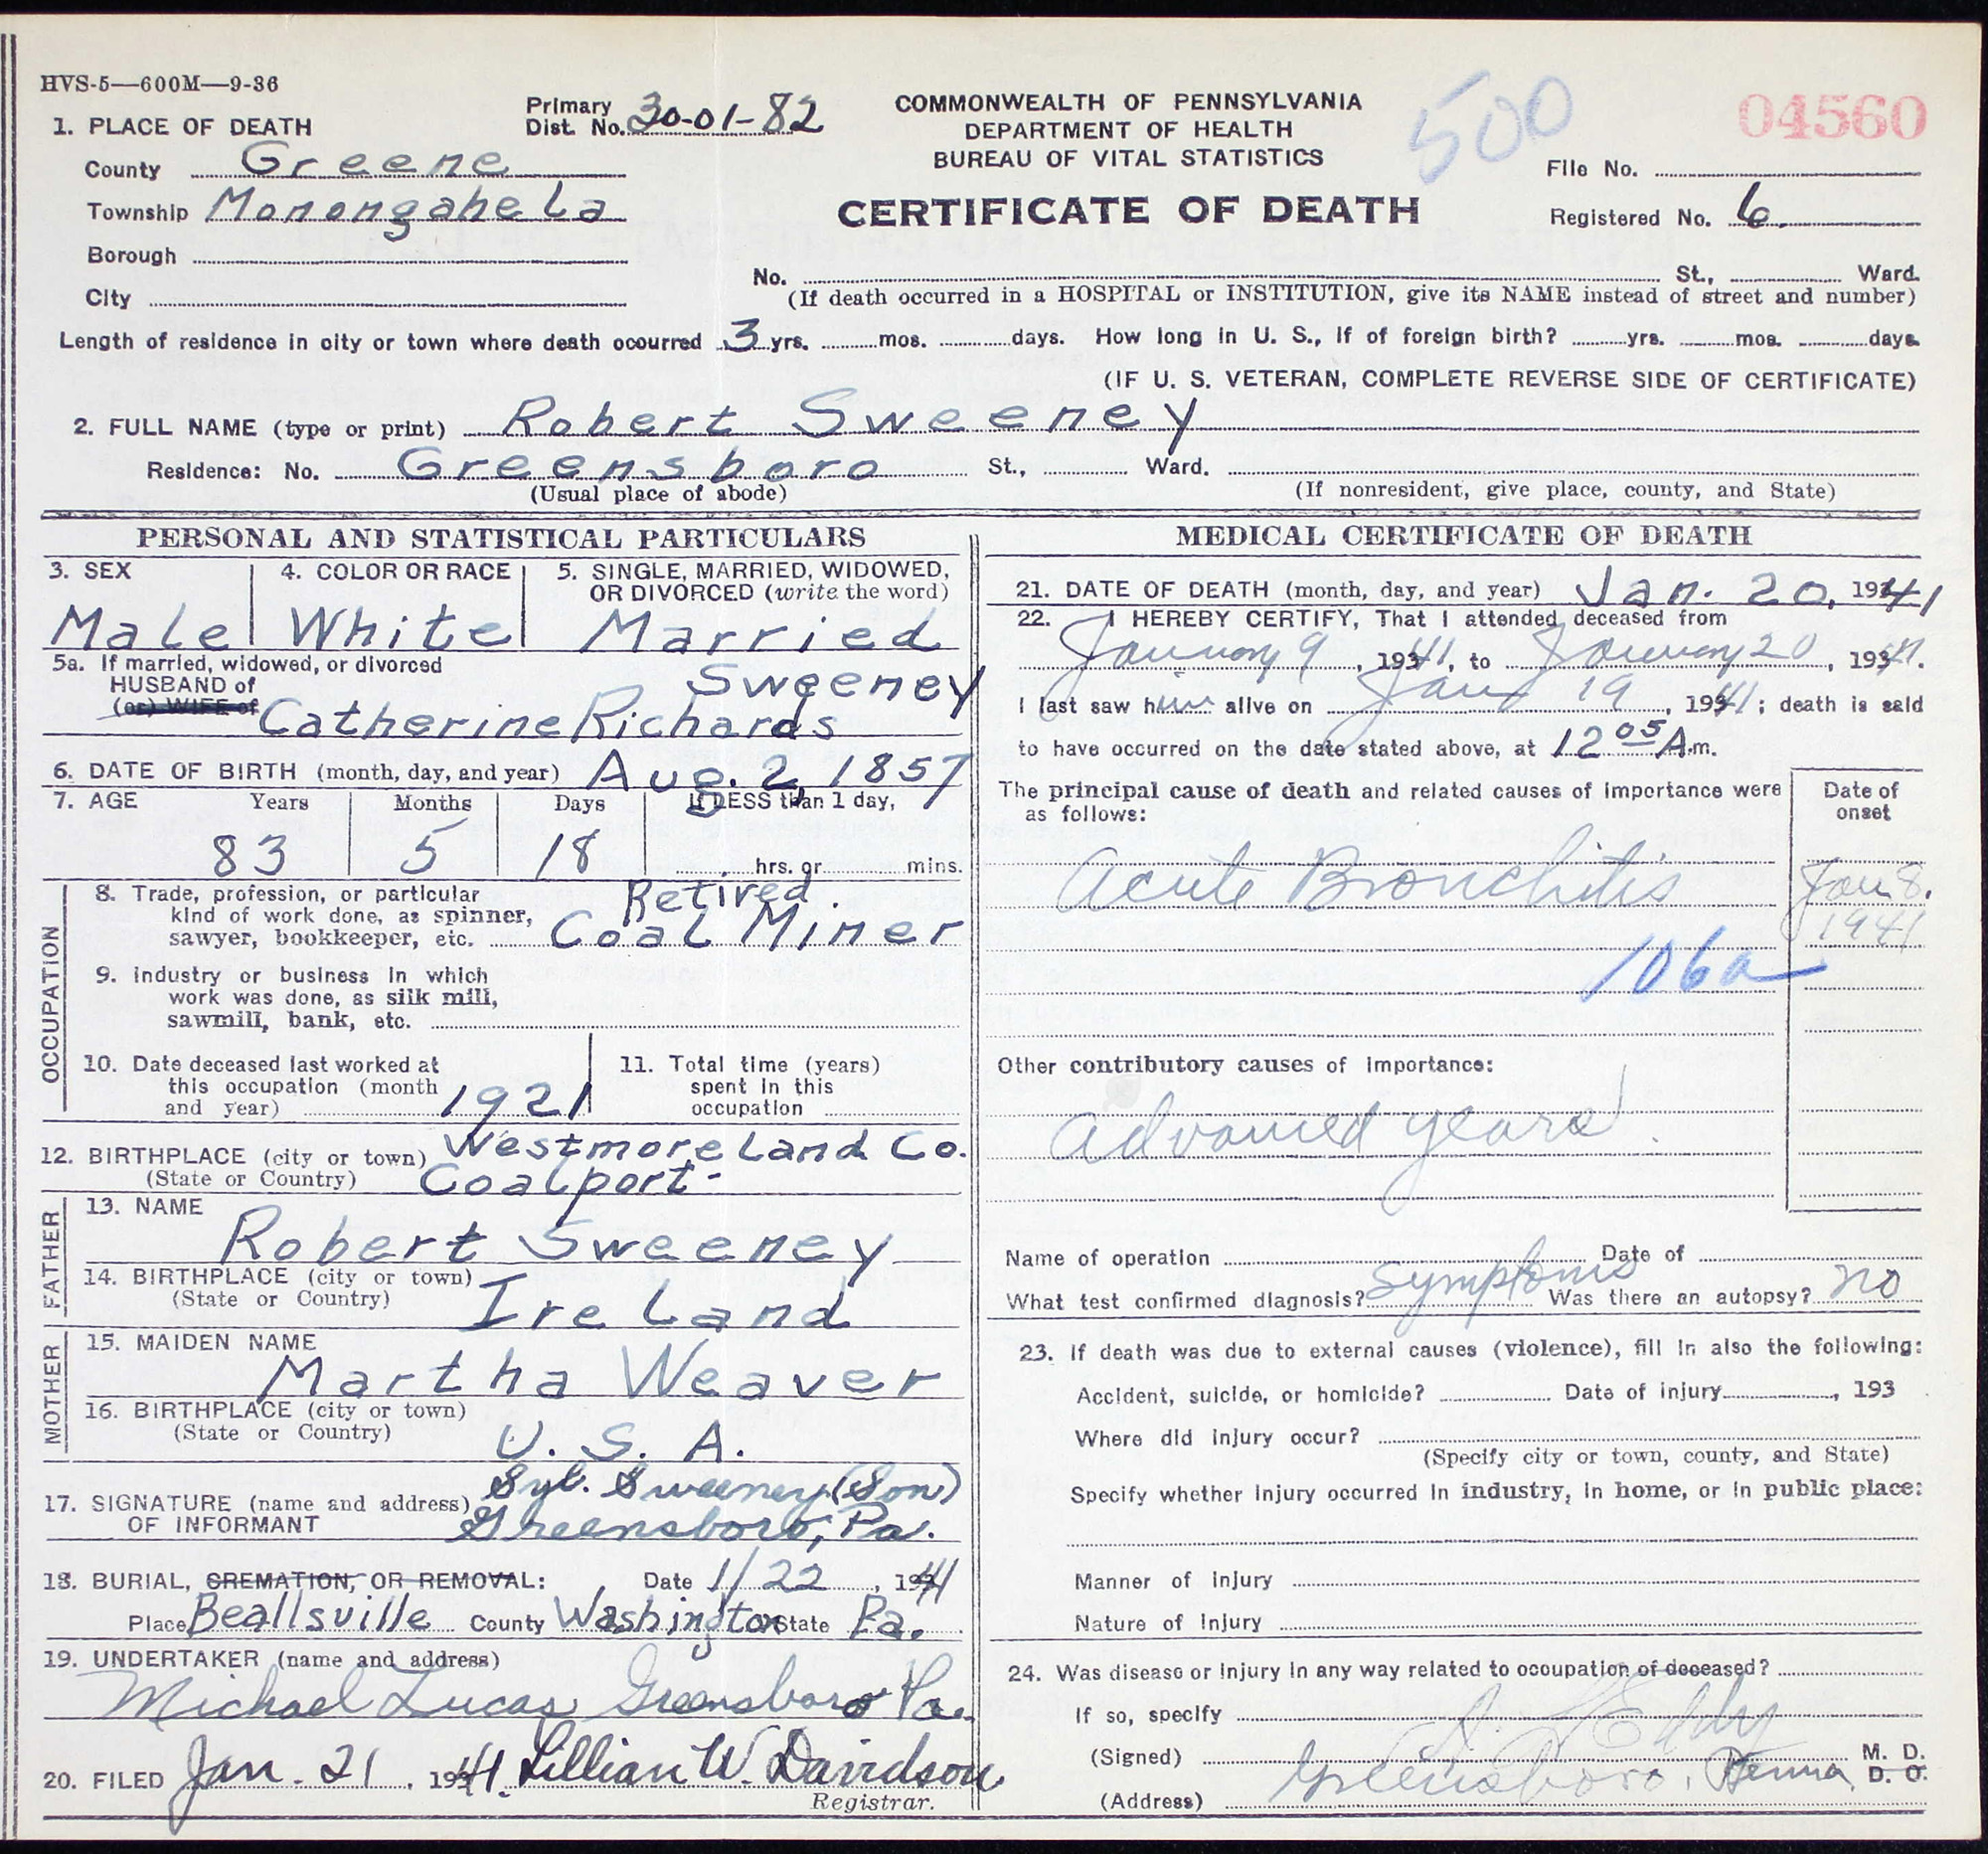 HVS-5—600M—9-36
1. PLACE OF DEATH
Primary Dist. No. 30-01-82
COMMONWEALTH OF PENNSYLVANIA
DEPARTMENT OF HEALTH
BUREAU OF VITAL STATISTICS
500
04560
County Greene
File No.
Township Monongahela
CERTIFICATE OF DEATH
Registered No. 6.
Borough
City
No. St., Ward.
(If death occurred in a HOSPITAL or INSTITUTION, give its NAME instead of street and number)
Length of residence in city or town where death occurred 3 yrs. mos. days. How long in U. S., if of foreign birth? yrs. mos. days.
(IF U. S. VETERAN, COMPLETE REVERSE SIDE OF CERTIFICATE)
2. FULL NAME (type or print) Robert Sweeney
Residence: No. Greensboro St., Ward.
(Usual place of abode) (If nonresident, give place, county, and State)
PERSONAL AND STATISTICAL PARTICULARS
3. SEX 4. COLOR OR RACE 5. SINGLE, MARRIED, WIDOWED,
OR DIVORCED (write the word)
Male White Married
5a. If married, widowed, or divorced
HUSBAND of Sweeney
(or) WIFE of Catherine Richards
6. DATE OF BIRTH (month, day, and year) Aug. 2, 1857
7. AGE Years Months Days If LESS than 1 day,
83 5 18 hrs. or mins.
OCCUPATION
8. Trade, profession, or particular Retired.
kind of work done, as spinner,
sawyer, bookkeeper, etc. Coal Miner
9. Industry or business in which
work was done, as silk mill,
sawmill, bank, etc.
10. Date deceased last worked at
this occupation (month
and year) 1921
11. Total time (years)
spent in this
occupation
12. BIRTHPLACE (city or town) Westmoreland Co.
(State or Country) Coalport-
FATHER
13. NAME
Robert Sweeney
14. BIRTHPLACE (city or town)
(State or Country) Ireland
MOTHER
15. MAIDEN NAME
Martha Weaver
16. BIRTHPLACE (city or town)
(State or Country) U. S. A.
17. SIGNATURE (name and address) Syl. Sweeney (Son)
OF INFORMANT Greensboro, Pa.
18. BURIAL, CREMATION, OR REMOVAL: Date 1/22, 1941
Place Beallsville County Washington State Pa.
19. UNDERTAKER (name and address)
Michael Lucas Greensboro Pa.
20. FILED Jan. 21, 1941. Lillian W. Davidson
Registrar.
MEDICAL CERTIFICATE OF DEATH
21. DATE OF DEATH (month, day, and year) Jan. 20, 1941
22. I HEREBY CERTIFY, That I attended deceased from
January 9, 1941, to January 20, 1941.
I last saw him alive on Jan 19, 1941; death is said
to have occurred on the date stated above, at 12 05 A.m.
The principal cause of death and related causes of importance were
as follows:
Date of
onset
Acute Bronchitis Jan 8.
1941
106a
Other contributory causes of importance:
advanced years.
Name of operation Date of
What test confirmed diagnosis? Symptoms Was there an autopsy? no
23. If death was due to external causes (violence), fill in also the following:
Accident, suicide, or homicide? Date of injury, 193
Where did injury occur?
(Specify city or town, county, and State)
Specify whether injury occurred in industry, in home, or in public place:
Manner of injury
Nature of injury
24. Was disease or injury in any way related to occupation of deceased?
If so, specify
(Signed) Eddy M. D.
D. O.
(Address) Greensboro, Penna